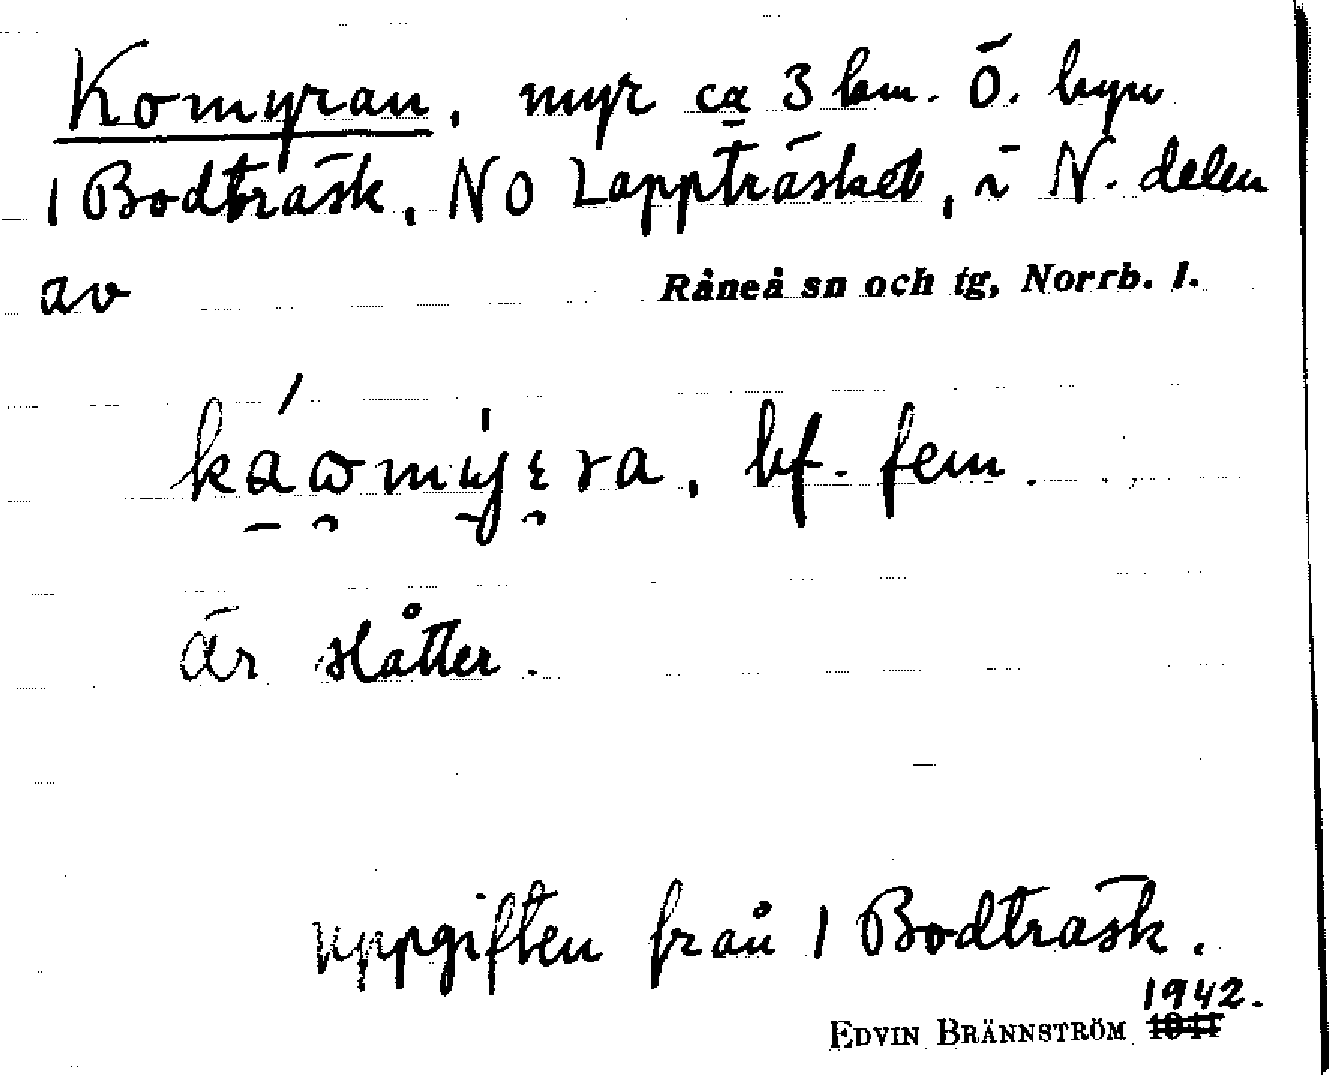 Komyran, myr ca 3 km. Ö. byn
1 Bodträsk, NO Lappträsket, i N. delen
av Råneå sn och tg, Norrb. l.
bf. fem.
är slåtter.
uppgiften från 1 Bodträsk.
1942.
EDVIN BRÄNNSTRÖM 1941